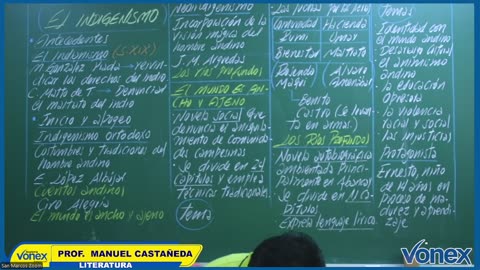 EL INDIGENISMO
• Antecedentes
El Indianismo (S. XIX)
M. González Prada → reivin-
dicar los derechos del indio
C. Matto de T → Denunciar
el maltrato del indio
• Inicio y apogeo
Indigenismo Ortodoxo
Costumbres y Tradiciones del
hombre andino
E. López Albújar
Cuentos andinos
Ciro Alegría
El mundo es ancho y ajeno
Neoindigenismo
Incorporación de la
visión mágica del
hombre andino
J. M. Arguedas
Los ríos profundos
EL MUNDO ES AN-
CHO Y AJENO
Novela social que
denuncia el
miento de comunida
des campesinas
Se divide en 24
capítulos y emplea
técnicas tradicionales
Tema
Comunidad
Hacienda
Rumi
Umay
Bienestar
Maltrato
Rosendo
Maqui
Álvaro
Benito
Castro (Se levan
ta en armas)
LOS RÍOS PROFUNDOS
Novela autobiográfica
ambientada princi-
palmente en Abancay
Se divide en XI ca-
pítulos
Expresa lenguaje lírico
Temas
Identidad con
el mundo andino
el animismo
andino
la educación
opresora
la violencia
racial y social
las injusticias
Protagonista
Ernesto, niño
de 14 años en
proceso de ma-
durez y aprendi-
zaje
San Marcos Zoom
Vonex
PROF. MANUEL CASTAÑEDA
LITERATURA
Vonex